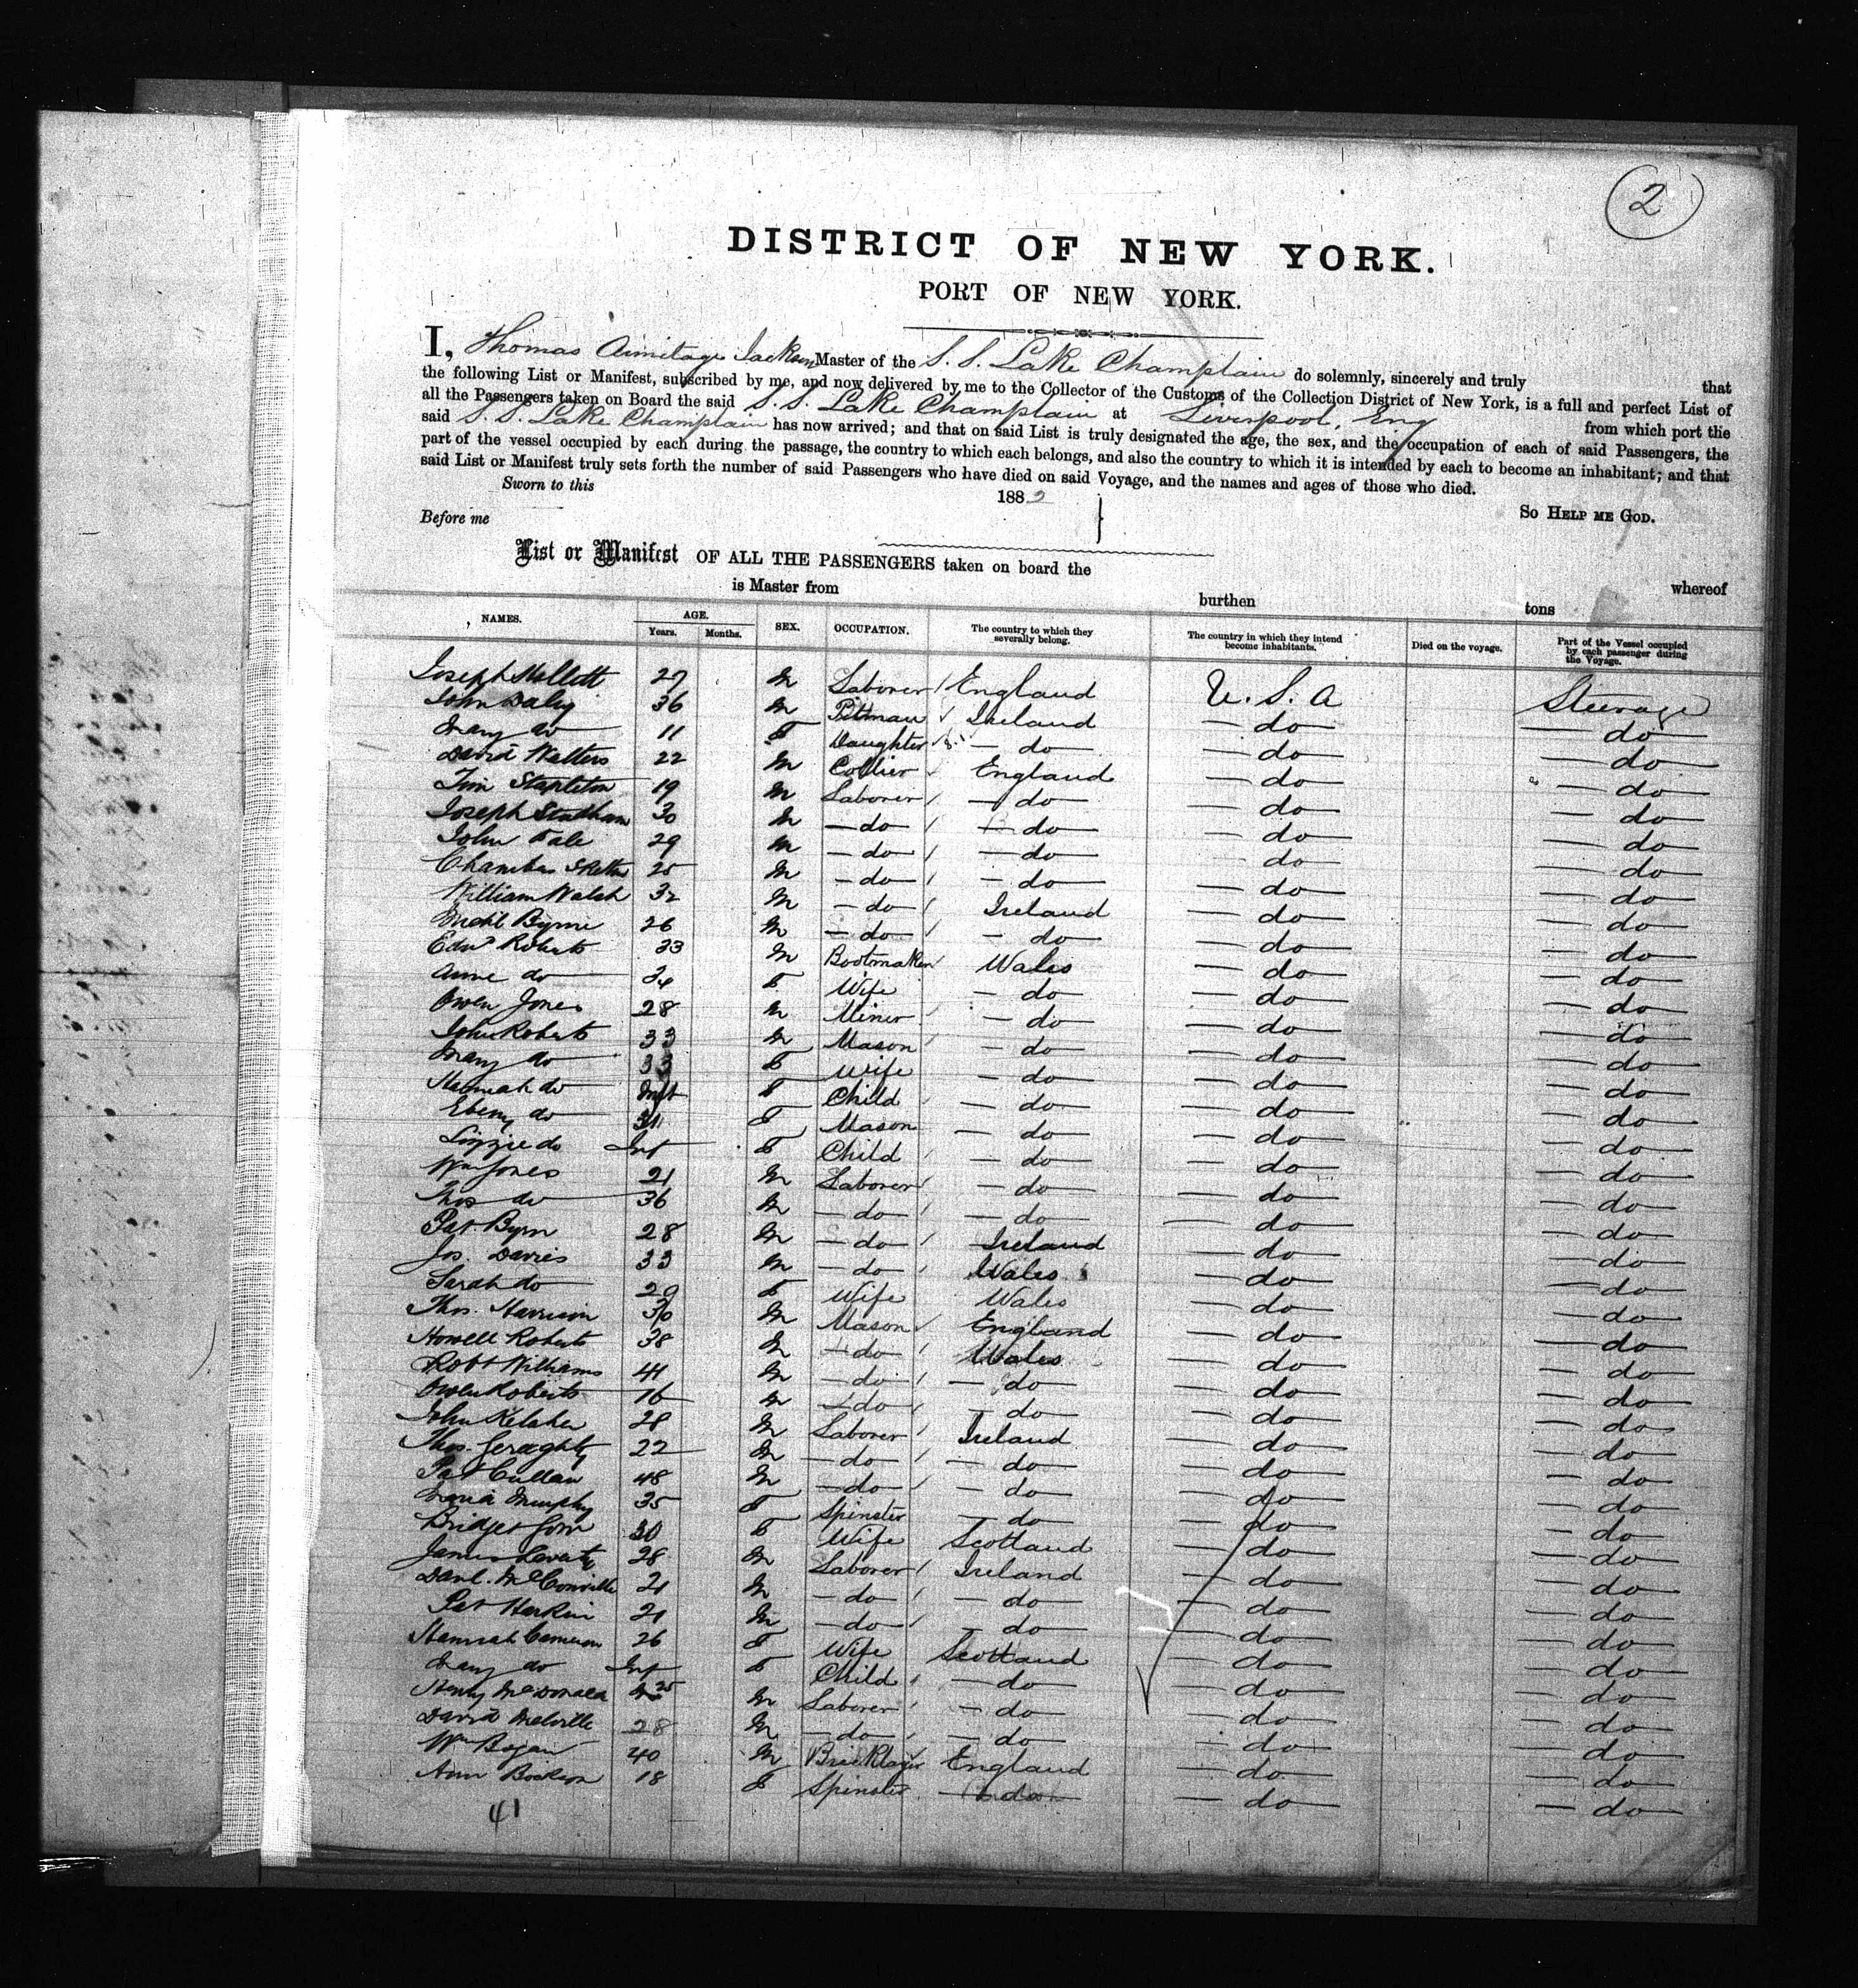 2
DISTRICT OF NEW YORK.
PORT OF NEW YORK.
I, Thomas Armitage Jackson Master of the S. S. Lake Champlain do solemnly, sincerely and truly that
the following List or Manifest, subscribed by me, and now delivered by me to the Collector of the Customs of the Collection District of New York, is a full and perfect List of
all the Passengers taken on Board the said S. S. Lake Champlain at Liverpool, Eng from which port the
said S. S. Lake Champlain has now arrived; and that on said List is truly designated the age, the sex, and the occupation of each of said Passengers, the
part of the vessel occupied by each during the passage, the country to which each belongs, and also the country to which it is intended by each to become an inhabitant; and that
said List or Manifest truly sets forth the number of said Passengers who have died on said Voyage, and the names and ages of those who died.
Sworn to this 1882 So Help me God.
Before me
List or Manifest OF ALL THE PASSENGERS taken on board the whereof
is Master from burthen tons
NAMES. AGE. Years. Months. SEX. OCCUPATION. The country to which they severally belong. The country in which they intend become inhabitants. Died on the voyage. Part of the Vessel occupied by each passenger during the Voyage.
Joseph Mollett 27 M Laborer England U. S. A Steerage
John Daley 36 M Pitman Ireland do do
Mary do 11 F Daughter do do do
David Walters 22 M Collier England do do
Tim Stapleton 19 M Laborer do do do
Joseph Statham 30 M do do do do
John 29 M do do do do
Chambers 25 M do do do do
William Walsh 32 M do Ireland do do
Michl Byrne 26 M do do do do
Edwd Roberts 33 M Bootmaker Wales do do
Anne do 34 F Wife do do do
Owen Jones 28 M Miner do do do
John Roberts 33 M Mason do do do
Mary do 33 F Wife do do do
Hannah do Inft F Child do do do
do 31 F Mason do do do
Lizzie do Inf F Child do do do
Wm Jones 21 M Laborer do do do
Thos do 36 M do do do do
Pat Byrn 28 M do Ireland do do
Jos. Davies 33 M do Wales do do
Sarah do 29 F Wife Wales do do
Thos. Harrison 30 M Mason England do do
Howell Roberts 38 M do Wales do do
Robt Williams 41 M do do do do
Owen Roberts 16 M do do do do
John Kelaher 28 M Laborer Ireland do do
Thos. Geraghty 22 M do do do do
Pat Cullan 48 M do do do do
Maria Murphy 35 F Spinster do do do
Bridget 30 F Wife Scotland do do
James Laverty 28 M Laborer Ireland do do
Danl. McConville 21 M do do do do
Pat Harkin 21 M do do do do
Hannah Cameron 26 F Wife Scotland do do
Mary do Inf F Child do do do
Henry McDonald 25 M Laborer do do do
David Melville 28 M do do do do
Wm 40 M Bricklayer England do do
Ann 18 F Spinster do do do
41